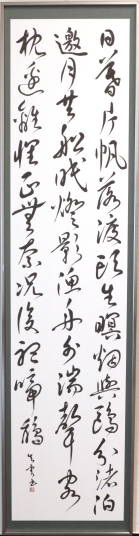 日暮片帆落渡頭生暝烟與鷗分渚泊
邀月共船眠燈影漁舟外湍聲客
枕邊離懷正無奈況復聽啼鵑